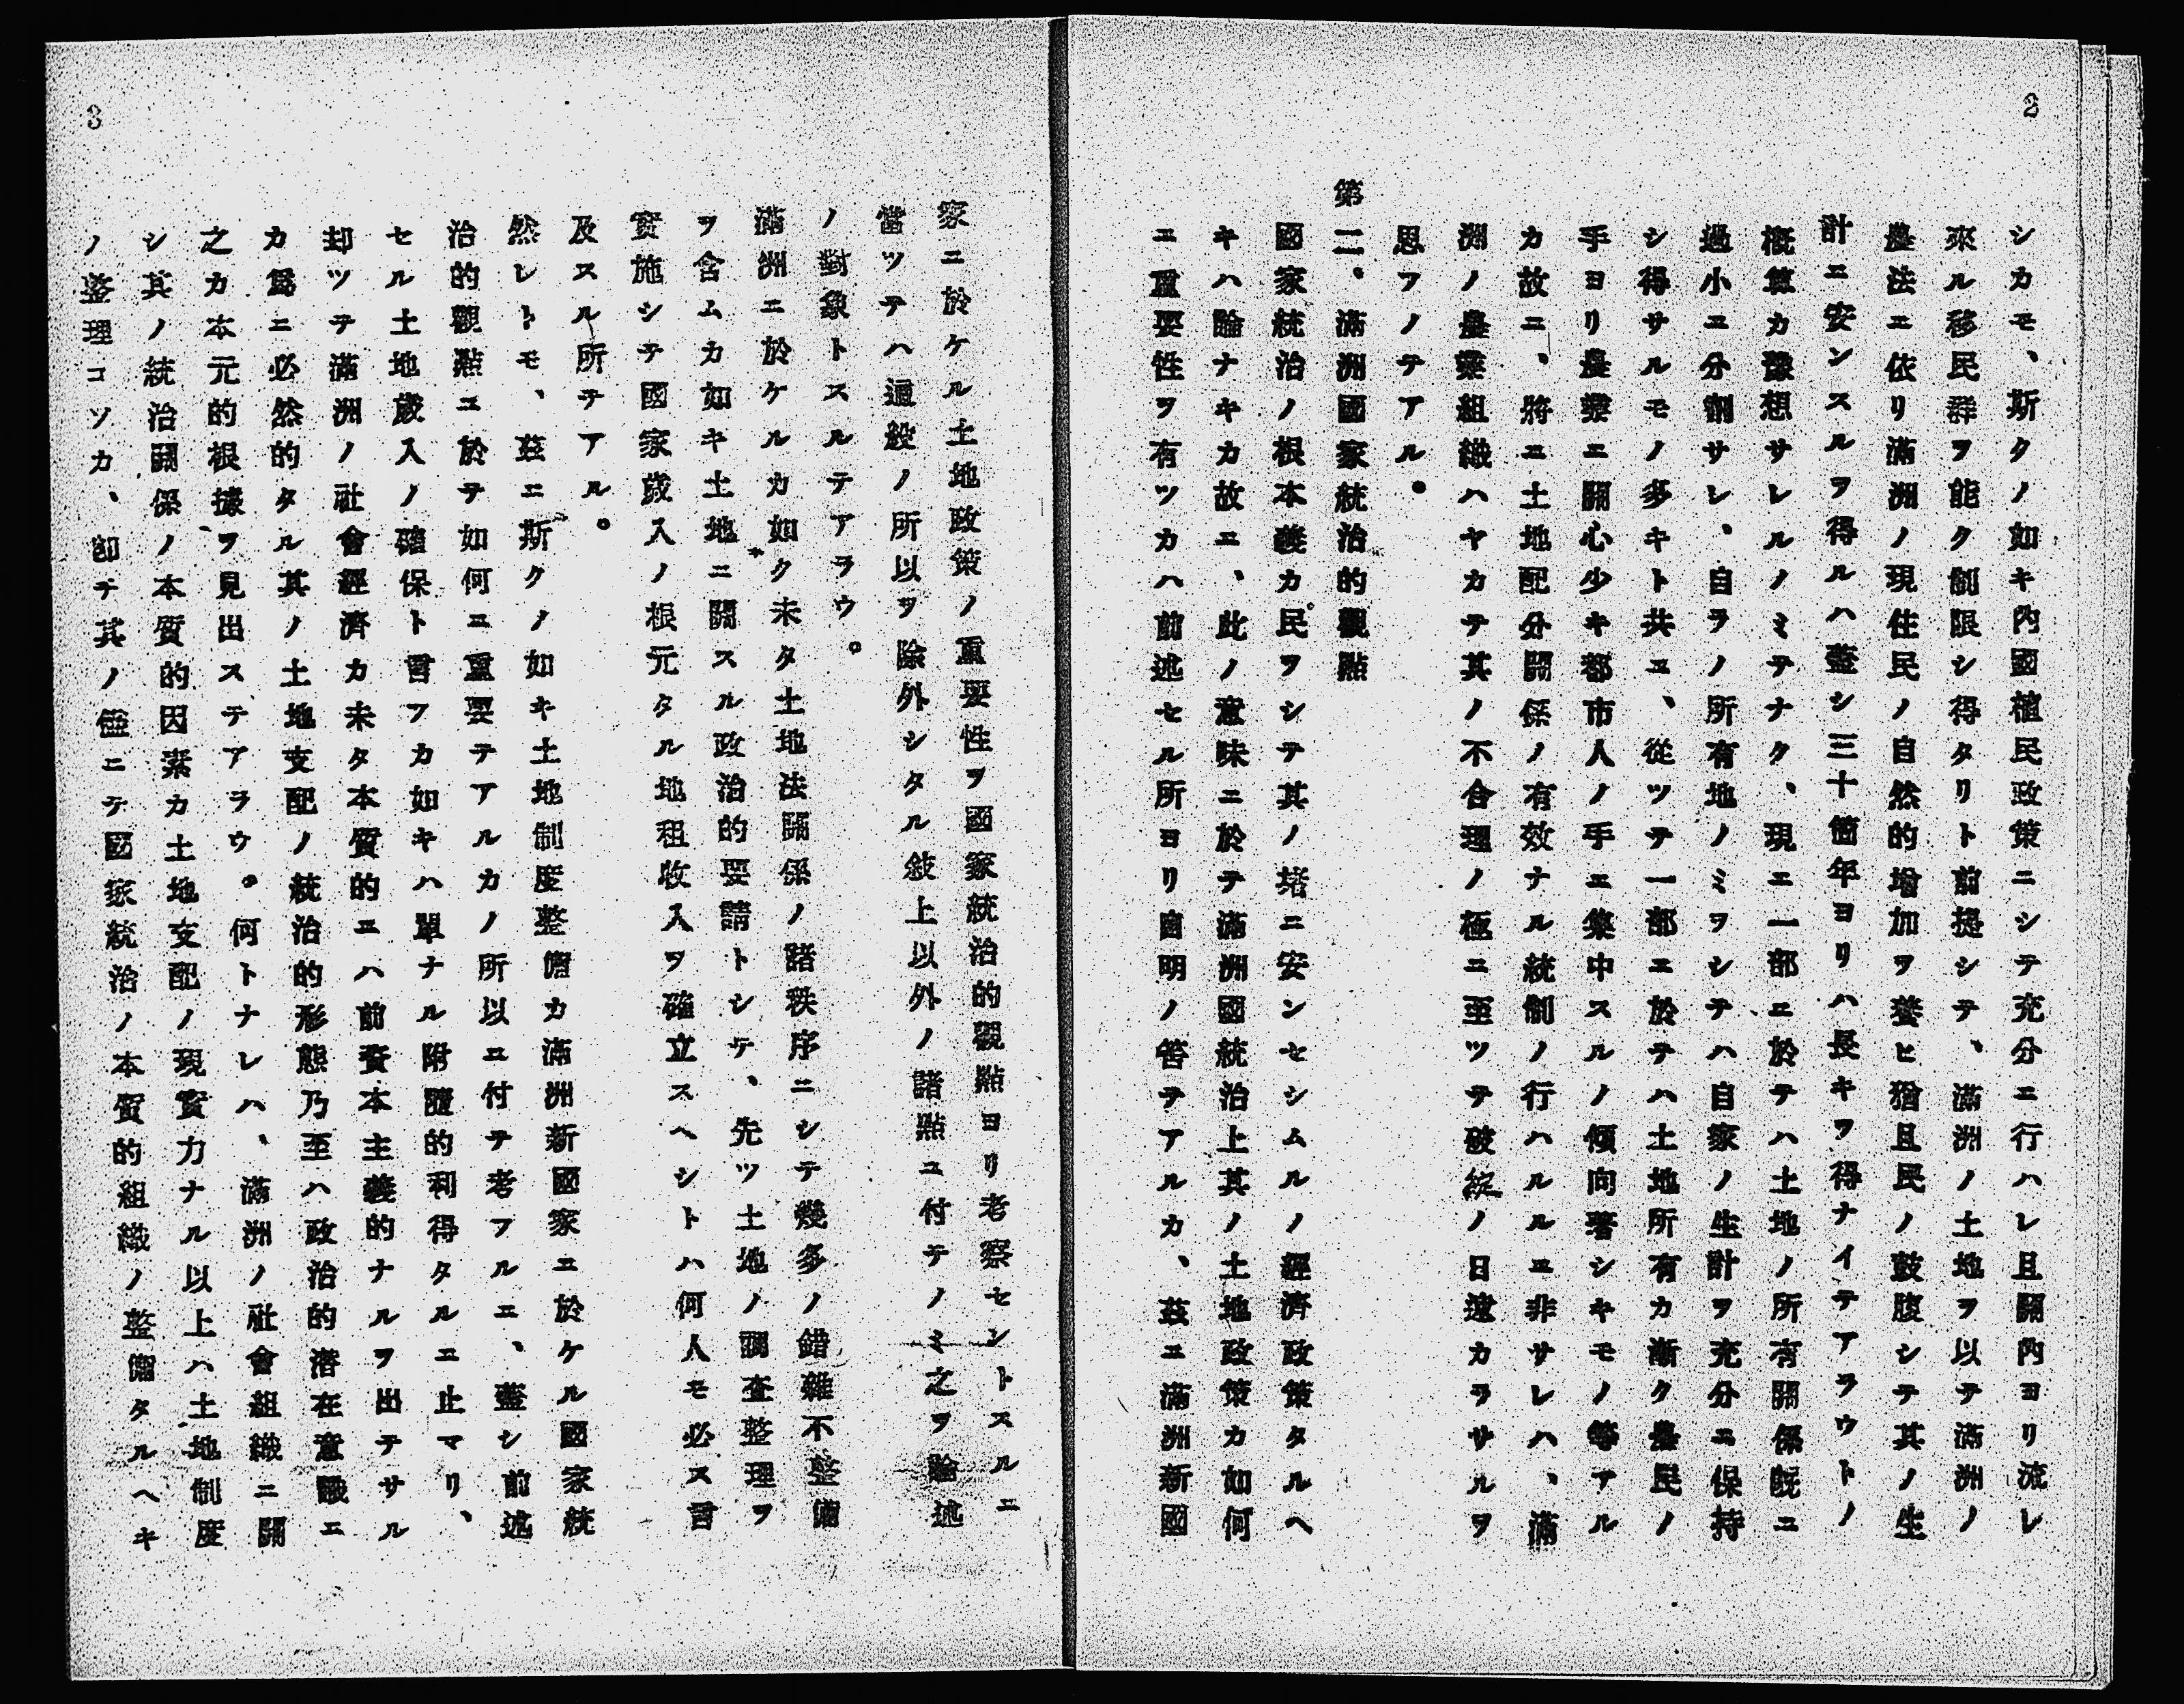 2
シカモ、斯クノ如キ內國植民政策ニシテ充分ニ行ハレ且關內ヨリ流レ
來ル移民群ヲ能ク制限シ得タリト前提シテ、滿洲ノ土地ヲ以テ滿洲ノ
農法ニ依リ滿洲ノ現住民ノ自然的增加ヲ養ヒ猶且民ノ鼓腹シテ其ノ生
計ニ安ンスルヲ得ルハ蓋シ三十箇年ヨリハ長キヲ得ナイテアラウトノ
概算カ豫想サレルノミテナク、現ニ一部ニ於テハ土地ノ所有關係旣ニ
過小ニ分割サレ、自ラノ所有地ノミヲシテハ自家ノ生計ヲ充分ニ保持
シ得サルモノ多キト共ニ、從ツテ一部ニ於テハ土地所有カ漸ク農民ノ
手ヨリ農業ニ關心少キ都市人ノ手ニ集中スルノ傾向著シキモノ等アル
カ故ニ、將ニ土地配分關係ノ有效ナル統制ノ行ハルルニ非サレハ、滿
洲ノ農業組織ハヤカテ其ノ不合理ノ極ニ至ツテ破綻ノ日遠カラサルヲ
思フノテアル。
第二、滿洲國家統治的觀點
國家統治ノ根本義カ民ヲシテ其ノ堵ニ安ンセシムルノ經濟政策タルヘ
キハ論ナキカ故ニ、此ノ意味ニ於テ滿洲國統治上其ノ土地政策カ如何
ニ重要性ヲ有ツカハ前述セル所ヨリ自明ノ筈テアルカ、茲ニ滿洲新國
3
家ニ於ケル土地政策ノ重要性ヲ國家統治的觀點ヨリ老察セントスルニ
當ツテハ通般ノ所以ヲ除外シタル敍上以外ノ諸點ニ付テノミ之ヲ論述
ノ對象トスルテアラウ。
滿洲ニ於ケルカ如ク未タ土地法關係ノ諸秩序ニシテ幾多ノ錯雜不整備
ヲ含ムカ如キ土地ニ關スル政治的要請トシテ、先ツ土地ノ調査整理ヲ
實施シテ國家歲入ノ根元タル地租收入ヲ確立スヘシトハ何人モ必ス言
及スル所テアル。
然レトモ、茲ニ斯クノ如キ土地制度整備カ滿洲新國家ニ於ケル國家統
治的觀點ニ於テ如何ニ重要テアルカノ所以ニ付テ考フルニ、蓋シ前述
セル土地歲入ノ確保ト言フカ如キハ單ナル附隨的利得タルニ止マリ、
却ツテ滿洲ノ社會經濟カ未タ本質的ニハ前資本主義的ナルヲ出テサル
カ爲ニ必然的タル其ノ土地支配ノ統治的形態乃至ハ政治的潛在意識ニ
之カ本元的根據ヲ見出ステアラウ。何トナレハ、滿洲ノ社會組織ニ關
シ其ノ統治關係ノ本質的因素カ土地支配ノ現實力ナル以上ハ土地制度
ノ整理コソカ、卽チ其ノ儘ニテ國家統治ノ本質的組織ノ整備タルヘキ